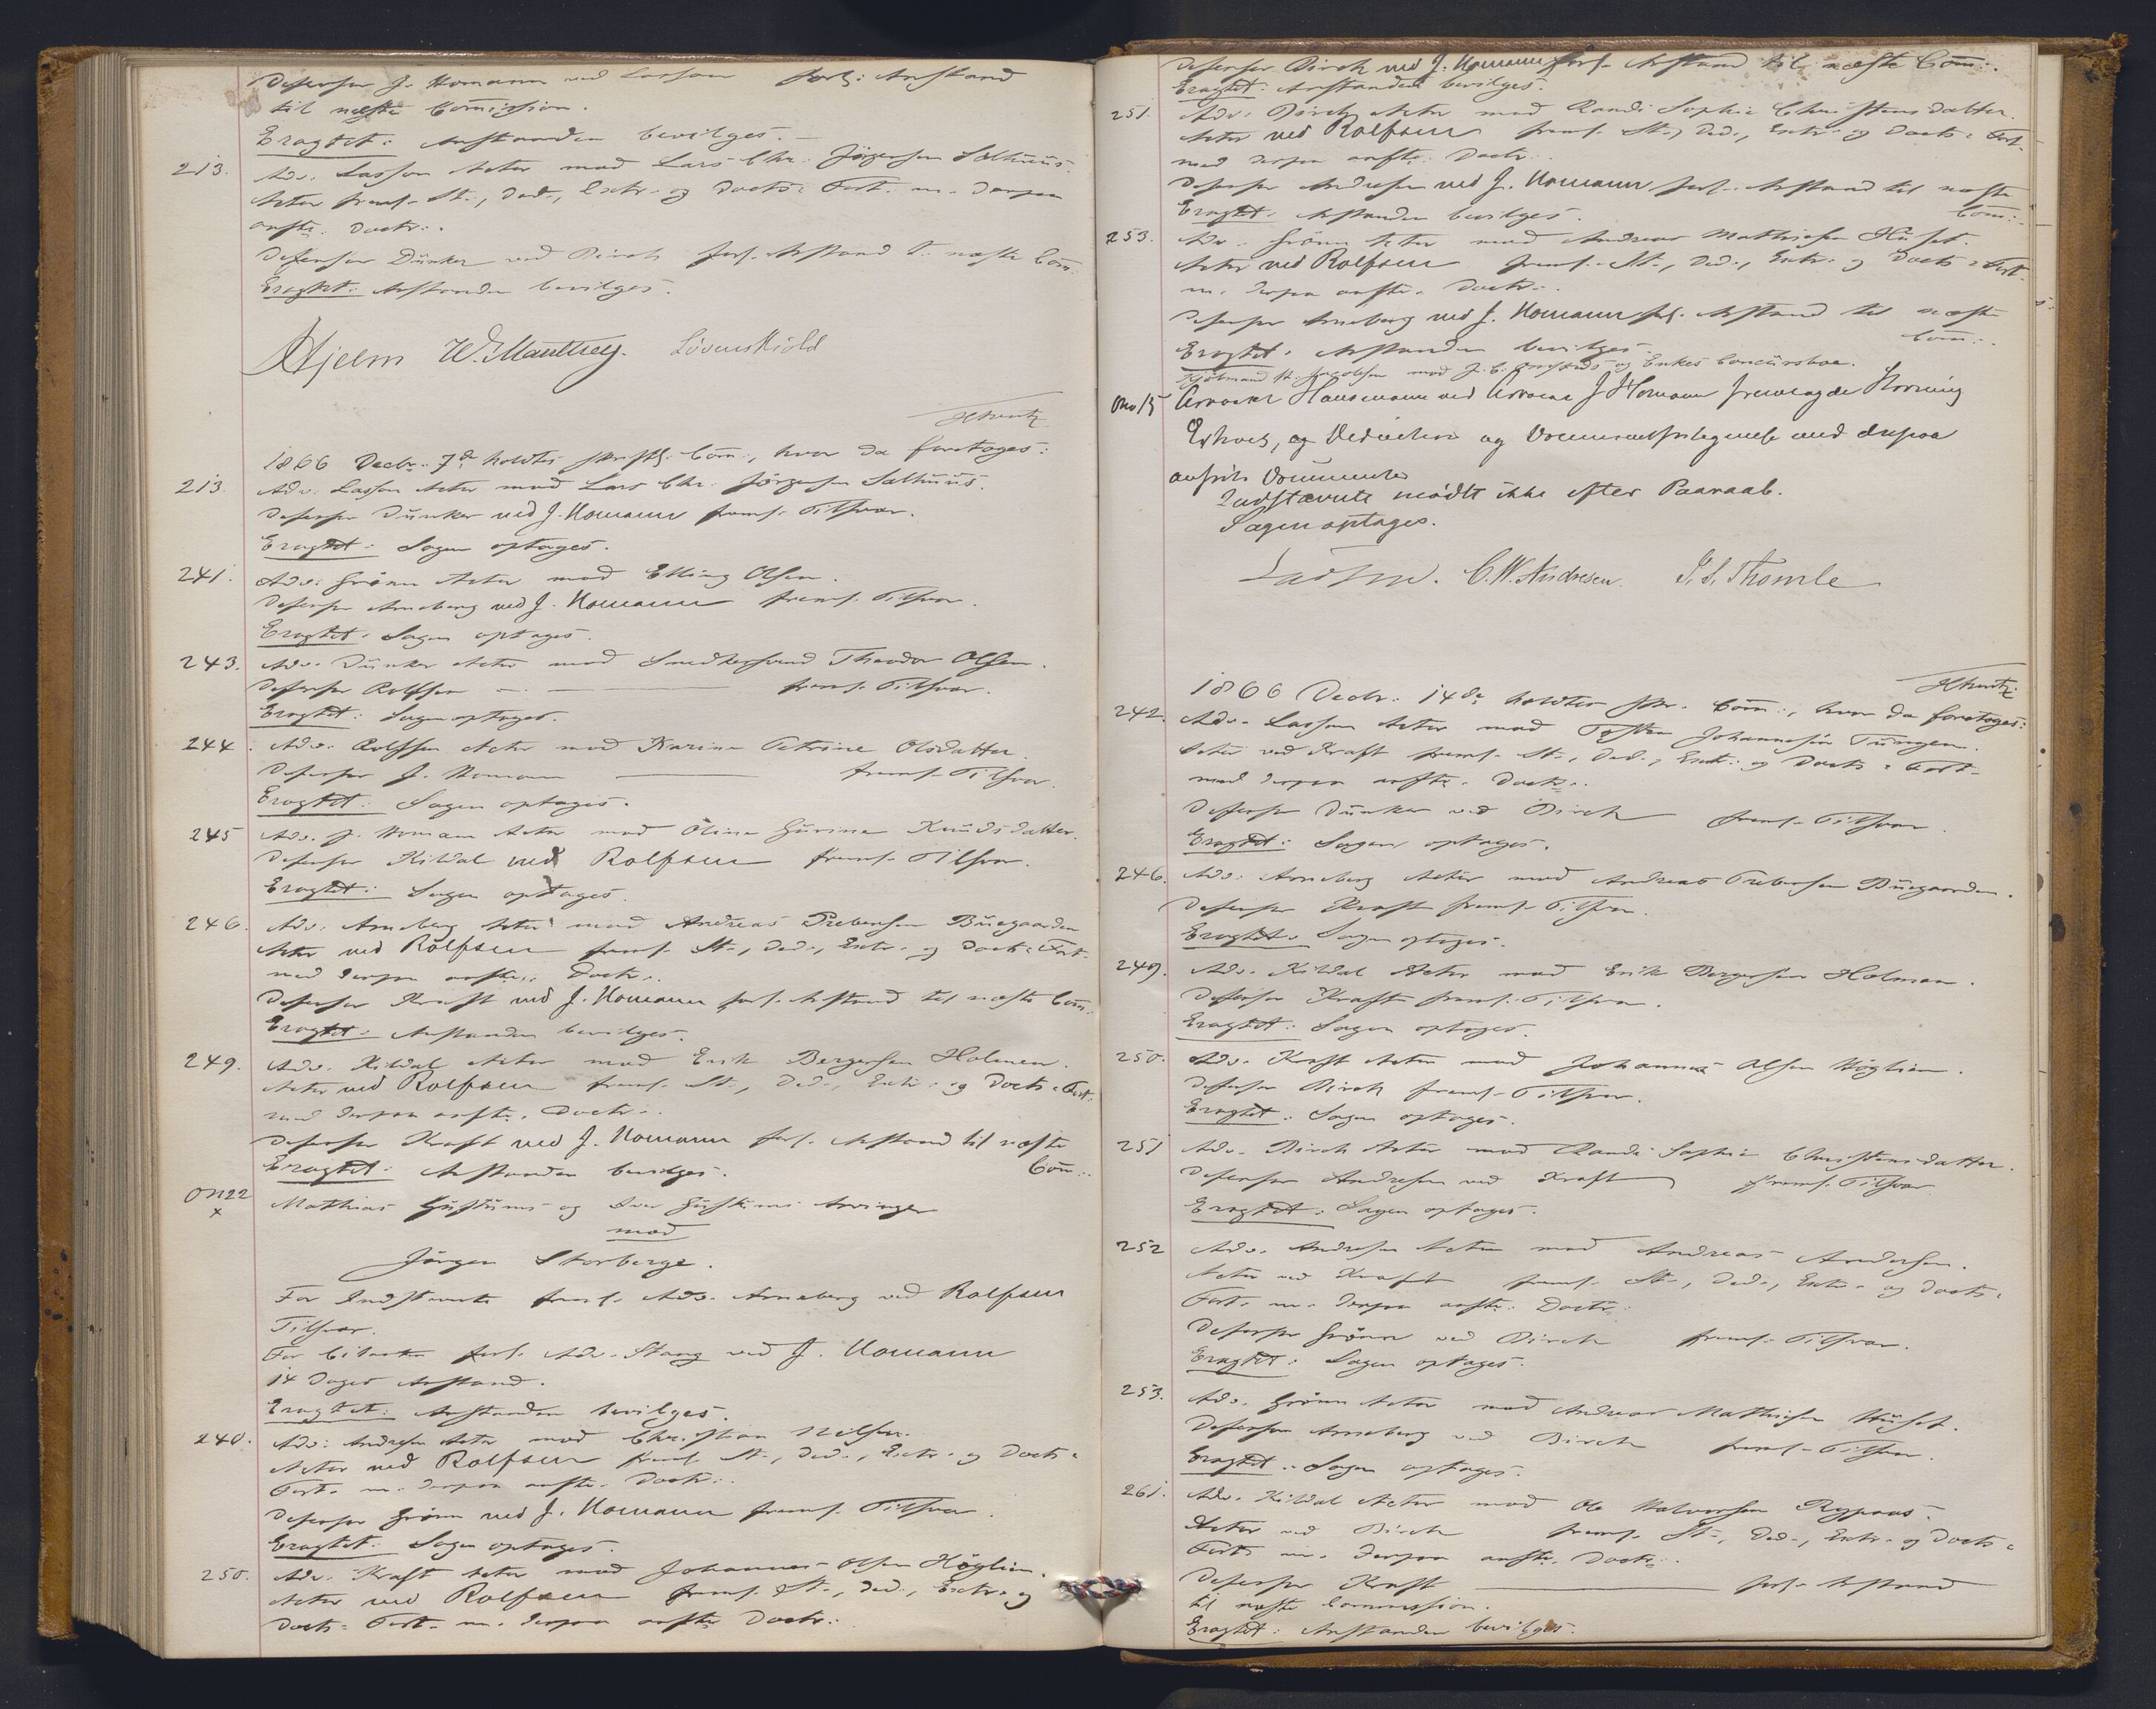 Defensor J. Homann ved Lasson forl: Anstand
til næste Commission.
Eragtet: Anstanden bevilges.
213. Adv. Lasson Actor mod Lars Chr. Jörgensen Salhuus.
Actor freml. St., Ded., Extr. og Docts: Fort. m. derpaa
anførte Doctr:.
Defensor Dunker ved Birch forl. Anstand t. næste Com:
Eragtet: Anstanden bevilges.
Hjelm W. Manthey. Lövenskiold
1866 Decbr. 7de holdtes skriftl. Com:, hvor da foretages:
213. Adv. Lasson Actor mod Lars Chr. Jörgensen Salhuus.
Defensor Dunker ved J. Homann freml. Tilsvar.
Eragtet: Sagen optages.
241. Adv: Grönn Actor mod Elling Olsen.
Defensor Arneberg ved J. Homann freml. Tilsvar.
Eragtet: Sagen optages.
243. Adv. Dunker Actor mod Snedkersvend Theodor Olsen.
Defensor Rolfsen — freml. Tilsvar.
Eragtet: Sagen optages.
244. Adv. Rolfsen Actor mod Karine Petrine Olsdatter
Defensor J. Homann — freml. Tilsvar.
Eragtet: Sagen optages.
245 Adv. J. Homann Actor mod Oline Gurine Knudsdatter.
Defensor Kildal ved Rolfsen freml. Tilsvar.
Eragtet: Sagen optages.
246. Adv. Arneberg Actor mod Andreas Prebensen Buegaarden
Actor ved Rolfsen freml. St., Ded., Extr. og Docts: Fort.
med derpaa anførte Doctr.
Defensor Kraft ved J. Homann forl. Anstand til næste Com:
Eragtet: Anstanden bevilges.
249. Adv. Kildal Actor mod Erik Bergersen Holmen.
Actor ved Rolfsen freml. St., Ded., Extr. og Docts: Fort.
med derpaa anførte Doctr.
Defensor Kraft ved J. Homann forl. Anstand til næste
Eragtet: Anstanden bevilges. Com:.
ON22 Mathias Gustums og Iver Gustums Arvinger
x
mod
Jörgen Storberge.
For Indstevnte freml. Adv. Arneberg ved Rolfsen
Tilsvar.
For Citanten forl. Adv. Stang ved J. Homann
14 Dages Anstand.
Eragtet: Anstanden bevilges.
240. Adv: Andresen Actor mod Christian Nilsen.
Actor ved Rolfsen freml. St., Ded., Extr. og Docts:
Fort. m. derpaa anførte Doctr:.
Defensor Grönn ved J. Homann freml. Tilsvar.
Eragtet: Sagen optages.
250. Adv. Kraft Actor mod Johannes Olsen Höglien.
Actor ved Rolfsen freml. St., Ded., Extr. og
Docts: Fort. m. derpaa anførte Doctr:.
Defensor Birch ved J. Homann forl. Anstand til næste Com:.
Eragtet: Anstanden bevilges.
251. Adv. Birch Actor mod Randi Sophie Christensdatter.
Actor ved Rolfsen freml. St., Ded., Extr. og Docts: Fort.
med derpaa anførte Doctr.
Defensor Andresen ved J. Homann forl. Anstand til næste
Eragtet: Anstanden bevilges. Com:.
253. Adv. Grönn Actor mod Andreas Mathiesen Huset.
Actor ved Rolfsen freml. St., Ded., Extr. og Docts: Fort.
m. derpaa anførte Doctr:.
Defensor Arneberg ved J. Homann forl. Anstand til næste
Eragtet: Anstanden bevilges. Com:.
Kjöbmand H. Jacobsen mod J. C. og Enkes Concursboe.
Ono 15 Advocat Homann ved Advocat J Homann fremlagde Stevning
Exhos, og Deduction og Documentfrlegnelse med derpaa
anførte Documenter
Indstævnte mödte ikke efter Paaraab.
Sagen optages.
C. W. Andresen. J. S. Thomle
1866 Decbr. 14de holdtes skr. Com:, hvor da foretages:
242. Adv. Lasson Actor mod Johannesen Tungen.
Actor ved Kraft freml. St., Ded., Extr. og Docts: Fort.
med derpaa anførte Doctr.
Defensor Dunker ved Birch freml. Tilsvar.
Eragtet: Sagen optages.
246. Adv. Arneberg Actor mod Andreas Prebensen Buegaarden.
Defensor Kraft freml. Tilsvar.
Eragtet: Sagen optages.
249. Adv. Kildal Actor mod Erik Bergersen Holmen.
Defensor Kraft freml. Tilsvar.
Eragtet: Sagen optages.
250. Adv. Kraft Actor mod Johannes Olsen Höglien.
Defensor Birch freml. Tilsvar.
Eragtet: Sagen optages.
251 Adv. Birch Actor mod Randi Sophie Christensdatter.
Defensor Andresen ved Kraft freml. Tilsvar
Eragtet: Sagen optages.
252 Adv. Andresen Actor mod Andreas Andersen.
Actor ved Kraft freml. St., Ded., Extr. og Docts:
Fort. m. derpaa anførte Doctr:
Defensor Grönn ved Birch freml. Tilsvar.
Eragtet: Sagen optages.
253. Adv. Grönn Actor mod Andreas Mathiesen Huset.
Defensor Arneberg ved Birch freml. Tilsvar.
Eragtet: Sagen optages.
261. Adv. Kildal Actor mod Ole Halvorsen Rypaas.
Actor ved Birch freml. St., Ded., Extr. og Docts:
Fort. m. derpaa anførte Doctr:.
Defensor Kraft — forl. Anstand
til næste Commission.
Eragtet: Anstanden bevilges.